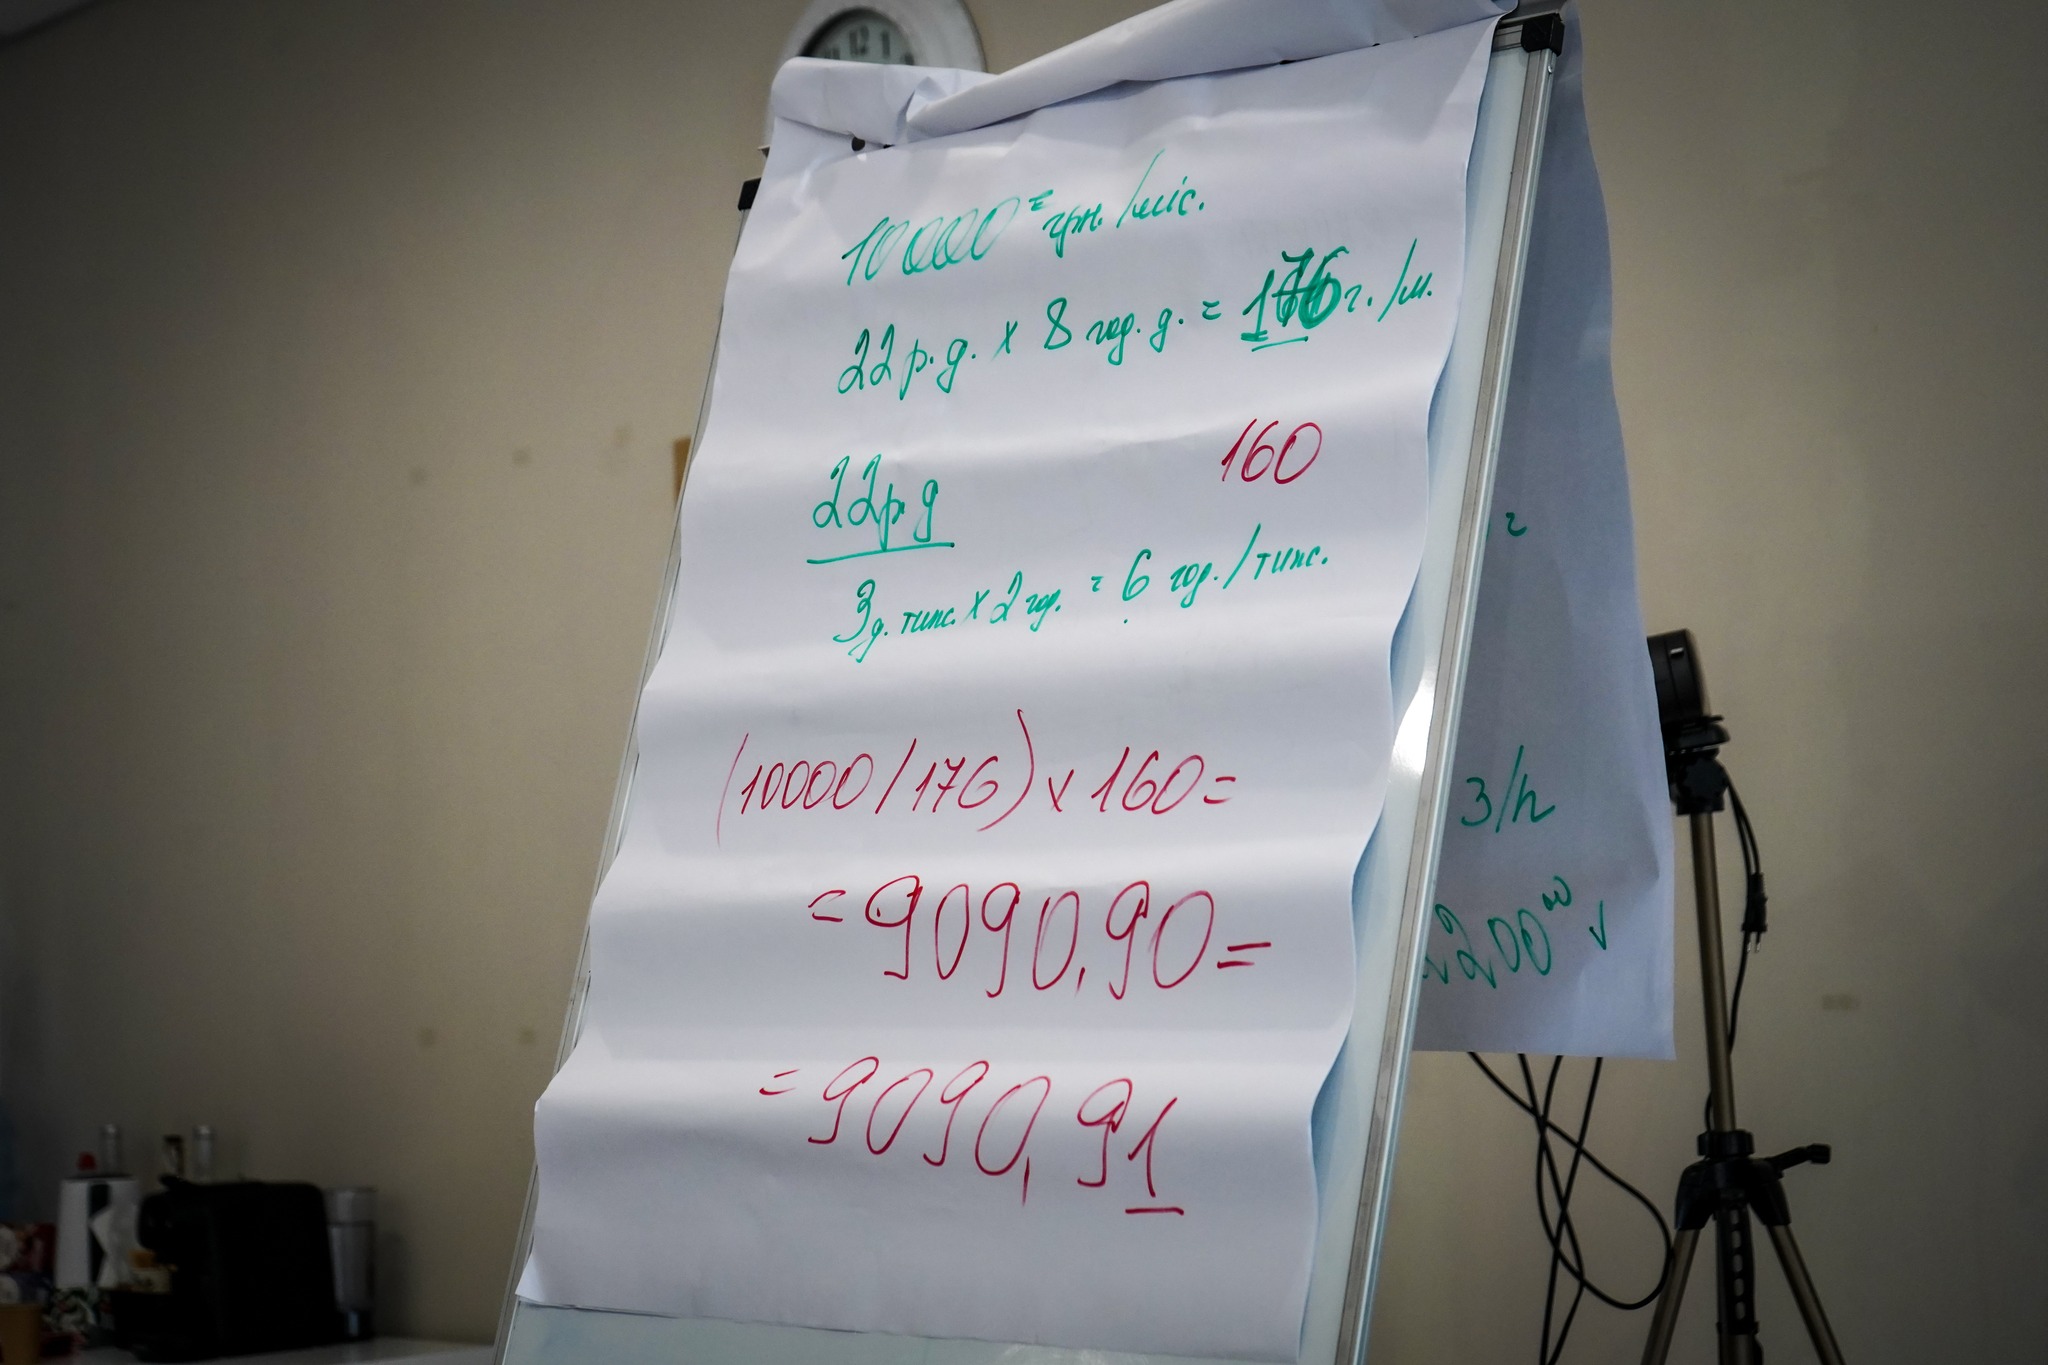 10000= грн./міс.
22 р.д. x 8 год. д. = 176 г./м.
160
22 р.д
3 д. тиж. x 2 год. = 6 год./тиж.
(10000/176) x 160 =
= 9090,90 =
= 9090,91
г
3/h
2200 00 v
12 1